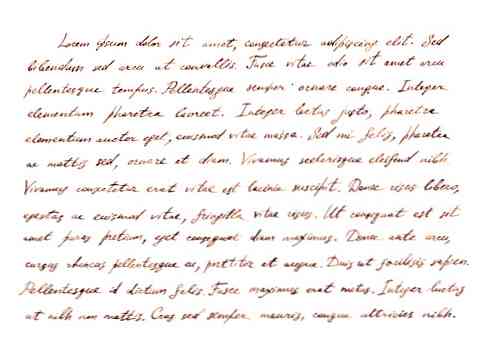 Lorem ipsum dolor sit amet, consectetur adipiscing elit. Sed
bibendum sed arcu ut convallis. Fusce vitae odio sit amet arcu
pellentesque tempus. Pellentesque semper ornare congue. Integer
elementum pharetra laoreet. Integer luctus justo, pharetra
elementum auctor eget, euismod vitae massa. Sed mi felis, pharetra
ac mattis sed, ornare et diam. Vivamus scelerisque eleifend nibh.
Vivamus consectetur erat vitae est lacinia suscipit. Donec risus libero,
egestas ac euismod vitae, fringilla vitae risus. Ut consequat est sit
amet purus pretium, eget consequat diam maximus. Donec ante arcu,
cursus rhoncus pellentesque ac, porttitor et augue. Duis ut facilisis sapien.
Pellentesque id dictum felis. Fusce maximus erat metus. Integer luctus
ut nibh non mattis. Cras sed semper mauris, congue ultricies nibh.